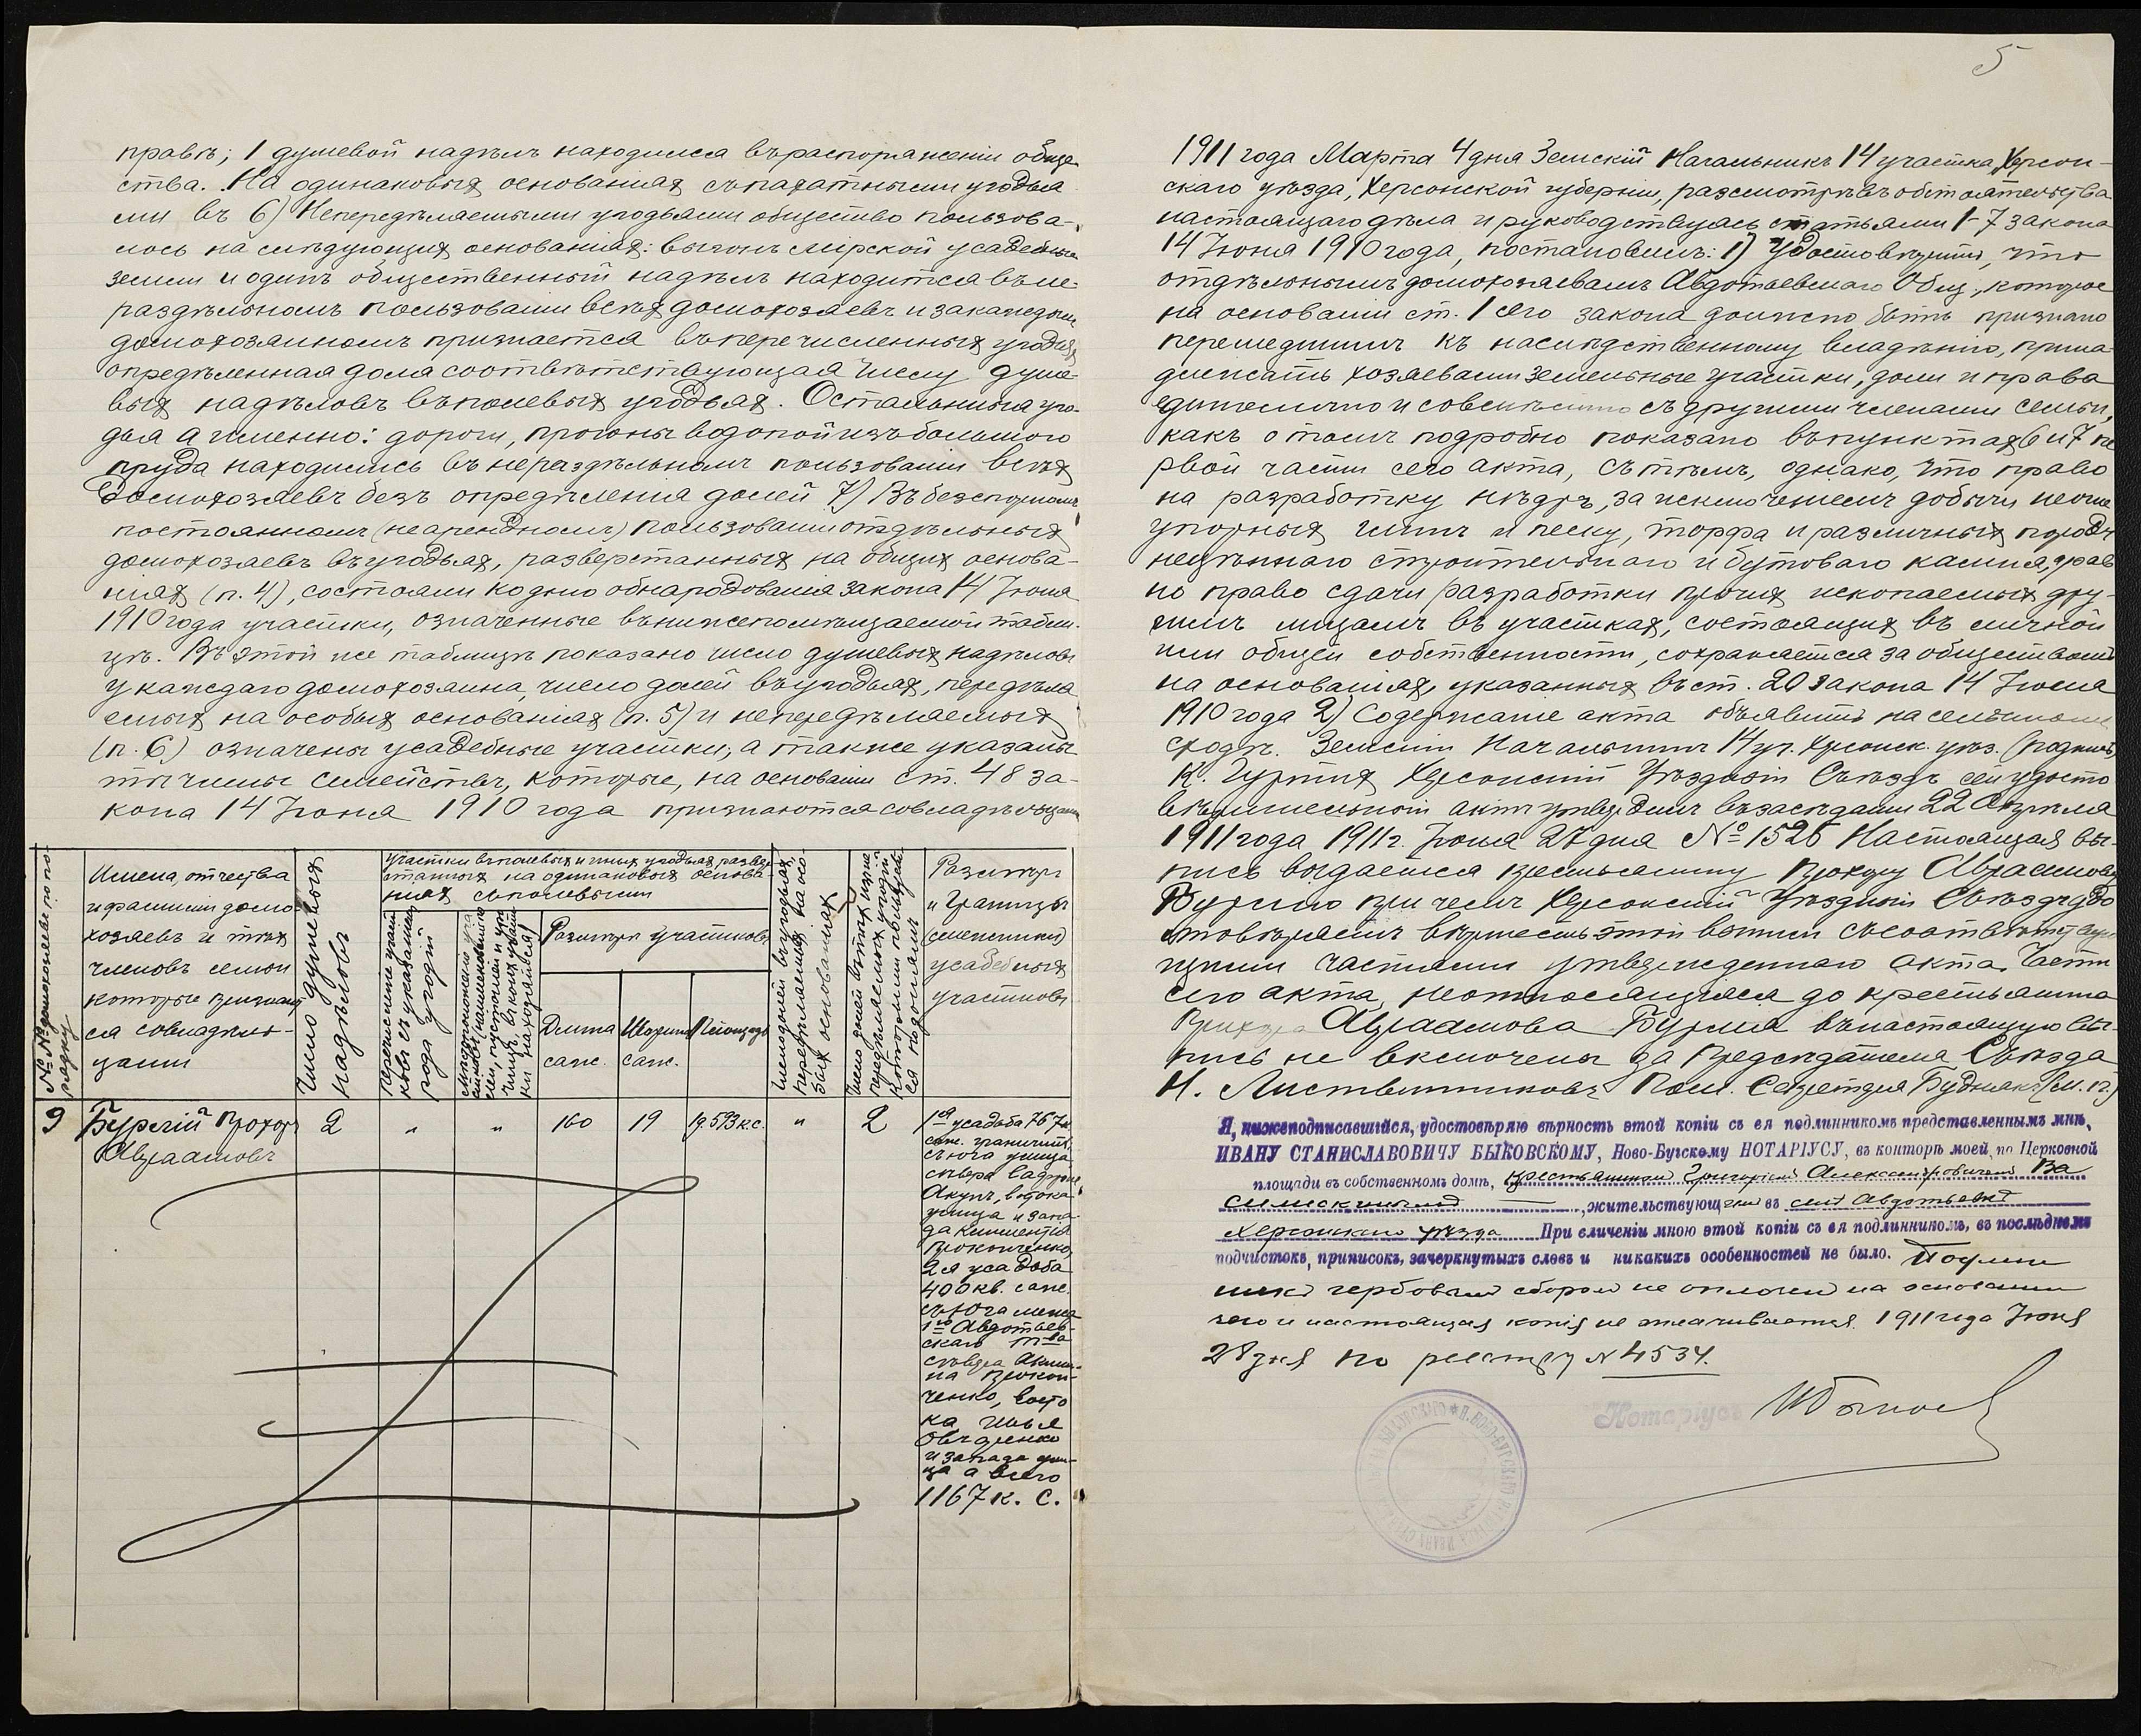 5
правъ; 1 душевой надѣлъ находился въ распоряженіи обще-
ства. На одинаковыхъ основаніяхъ съ пахатными угодья
ми въ 6) Непередѣляемыми угодьями общество пользова-
лось на слѣдующихъ основаніяхъ: выгонъ мірской усадебные
земли и одинъ общественный надѣлъ находится въ не-
раздѣльномъ пользованіи всѣхъ домохозяевъ и за каждымъ
домохозяиномъ признается въ перечисленныхъ угодьяхъ
опредѣленная доля соотвѣтствующая числу душе-
выхъ надѣловъ въ полевыхъ угодьяхъ. Остальныя уго-
дья а именно: дороги, прогоны водопой изъ большого
пруда находились въ нераздѣльномъ пользованіи всѣхъ
домохозяевъ безъ опредѣленія долей 7) Въ безспорномъ
постоянномъ (не арендномъ) пользованіи отдѣльныхъ
домохозяевъ въ угодьяхъ, разверстанныхъ на общихъ основа-
ніяхъ (п. 4), состояли ко дню обнародованія закона 14 Іюня
1910 года участки, означенные въ нижепомѣщаемой табли-
цѣ. Въ этой же таблицѣ показано число душевыхъ надѣловъ
у каждаго домохозяина, число долей въ угодьяхъ, передѣля
емыхъ на особыхъ основаніяхъ (п. 5) и непередѣляемыхъ
(п. 6) означены усадебные участки, а также указаны
тѣ члены семействъ, которые, на основаніи ст. 48 за-
кона 14 Іюня 1910 года признаются совладѣльцами
№ № домохозяевъ по по-
рядку
Имена, отчества
и фамиліи домо-
хозяевъ и тѣхъ
членовъ семьи
которые признают
ся совладѣль-
цами
Число душевыхъ
надѣловъ
Участки въ полевыхъ и иныхъ угодьяхъ развер
станныхъ на одинаковыхъ основа-
ніяхъ съ полевыми
Перечисленіе участ
ковъ съ указаніемъ
рода угодій
Размѣръ участковъ
Длина
саж.
Ширина
саж.
Площадь
Число долей въ угодьяхъ,
передѣляемыхъ на осо-
быхъ основаніяхъ
Размѣры
и границы
(смежники)
усадебныхъ
участковъ
9
Бурлій Прохоръ
Авраамовъ
2
"
"
160
19
1д. 593 к.с.
"
2
1я усадьба 767 кв.
саж. граничитъ
съ юга улица
400 кв. саж.
съ юга межа
1го Авдотьев-
скаго
1167 к. с.
1911 года Марта 4 дня Земскій Начальникъ 14 участка Херсон-
скаго уѣзда, Херсонской губерніи, разсмотрѣвъ обстоятельства
настоящаго дѣла и руководствуясь статьями 1-7 закона
14 Іюня 1910 года, постановилъ: 1) Удостовѣрить, что
отдѣльнымъ домохозяевамъ Авдотьевскаго Общ., которое
на основаніи ст. 1 сего закона должно быть признано
перешедшимъ къ наслѣдственному владѣнію, прина
длежатъ хозяевами земельные участки, доли и права
единолично и совмѣстно съ другими членами семьи,
какъ о томъ подробно показано въ пунктахъ 6 и 7 пе
рвой части сего акта, съ тѣмъ, однако, что право
на разработку нѣдръ, за исключеніемъ добычи неогне
упорныхъ глинъ и песку, торфа и различныхъ породъ
нецѣннаго строительнаго и бутоваго камня, рав
но право сдачи разработки прочихъ ископаемыхъ дру-
гимъ лицамъ въ участкахъ, состоящихъ въ личной
или общей собственности, сохраняется за обществомъ
на основаніяхъ, указанныхъ въ ст. 20 закона 14 Іюня
1910 года 2) Содержаніе акта объявить на сельскомъ
сходѣ. Земскій Начальникъ 14 уч. Херсонск. уѣз. (подпись)
К. Гуртихъ Херсонскій Уѣздный Съѣздъ сей удосто
вѣрительный актъ утвердилъ въ засѣданіи 22 Апрѣля
1911 года 1911 г. Іюня 27 дня № 1526 Настоящая вы-
пись выдается крестьянину Прохору Авраамову
Бурлію при чемъ Херсонскій Уѣздный Съѣздъ удо
стовѣряетъ вѣрность этой выписи съ соотвѣтствую
щими частями утвержденнаго акта. Части
сего акта, неотносящіяся до крестьянина
Прохора Авраамова Бурлія въ настоящую вы-
пись не включены За Предсѣдателя Съѣзда
Н. Листвинниковъ Пом. Секретаря Будникъ (М. П.)
Я, нижеподписавшійся, удостовѣряю вѣрность этой копіи съ ея подлинникомъ представленнымъ мнѣ,
ИВАНУ СТАНИСЛАВОВИЧУ БЫКОВСКОМУ, Ново-Бугскому НОТАРІУСУ, въ конторѣ моей, по Церковной
площади въ собственномъ домѣ, крестьяниномъ Григоріемъ Александровичемъ Ва
, жительствующимъ въ селѣ Авдотьевкѣ
Херсонскаго уѣзда При сличеніи мною этой копіи съ ея подлинникомъ, въ послѣднемъ
подчистокъ, приписокъ, зачеркнутыхъ словъ и никакихъ особенностей не было. Подлин
никъ гербовымъ сборомъ не оплоченъ на основаніи
чего и настоящая копія не оплачивается. 1911 года Іюня
28 дня по реестру № 4534.
Нотаріусъ